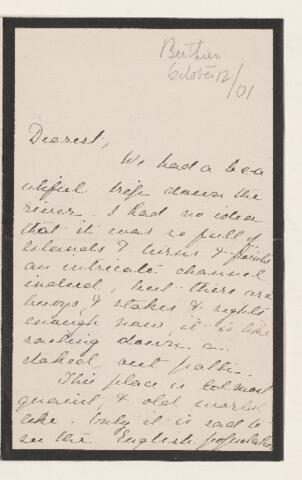 Berthier
October 12/01
Dearest,
We had a bea
utiful trip down the
river. I had no idea
that it was so full of
islands & turns & points
an intricate channel
indeed, but there are
buoys, & stakes & lights
enough now, it is like
sailing down a
staked out path.
This place is
quaint & old world
like. Only it is sad to
see the English population